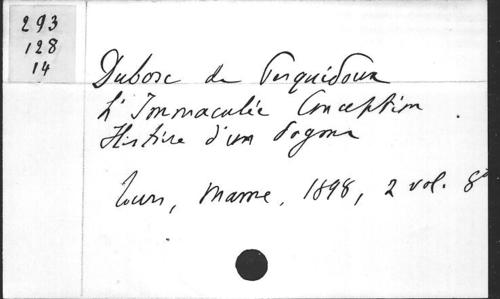 293
128
14
Dubosc de Pesquidoux
L'Immaculée Conception
Histoire d'un Dogme
Tours, Mame, 1898, 2 vol. 8°